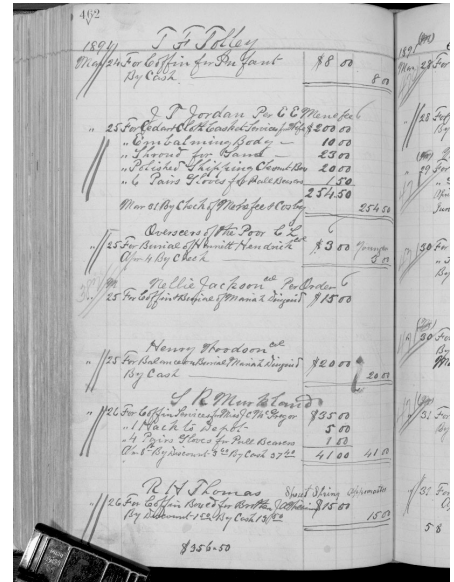 462
1894 T F Tolley
Mar 24 For Coffin for Infant $8 00
By Cash 8 00
J T Jordan Per E E Menefee
" 25 For Cedar Cloth Casket Services for Wife $200 00
" Embalming Body — 10 00
" Shroud for Same — 23 00
" Polished Shipping Chesnut Box 20 00
" 6 Pairs Gloves for Pall Bearers 1 50
254 50
Mar 31 By Check of Menefee & Cosby 254 50
Overseers of the Poor
" 25 For Burial of Harriett Hendrick col $3 00
Apr 4 By Check 3 00
Nellie Jackson col Per Order
25 For Coffin & Burial of Mariah $15 00
Henry Woodson col
" 25 For Balance on Burial Mariah $20 00
By Cash 20 00
S R Murkland
" 26 For Coffin Services for Miss J C McGregor $35 00
" 1 Hack to Depot 5 00
" 4 Pairs Gloves for Pall Bearers 1 00
By Discount By Cash 41 00 41 00
R H Thomas
" 26 For Coffin Boxed for Brother $15 00
By Discount By Cash 15 00
$356-50